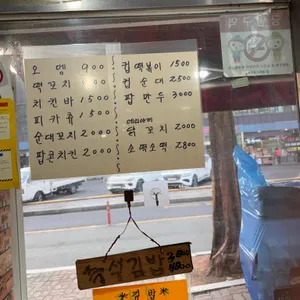 오뎅 900
떡꼬치
치킨바 1500
피카츄 1500
순대꼬치 2000
팝콘치킨 2000
컵떡볶이 1500
컵순대 2500
팝만두 3000
데리야끼
닭꼬치 2000
소떡소떡 2800
즉석김밥
김밥